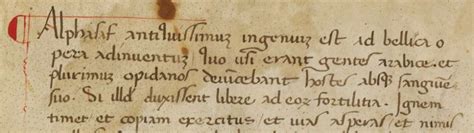 ¶ Alphasaf antiquissimuz ingenuiz est ad bellica o
pera adinventuz quo usi erant gentes arabice et
plurimuz opidanos deivcebant hostes absqz sanguine
suo. Si illd duxissent libere ad eoz fortilitia. Ignem
timet et copiam exercitus et uias asperas et nimus